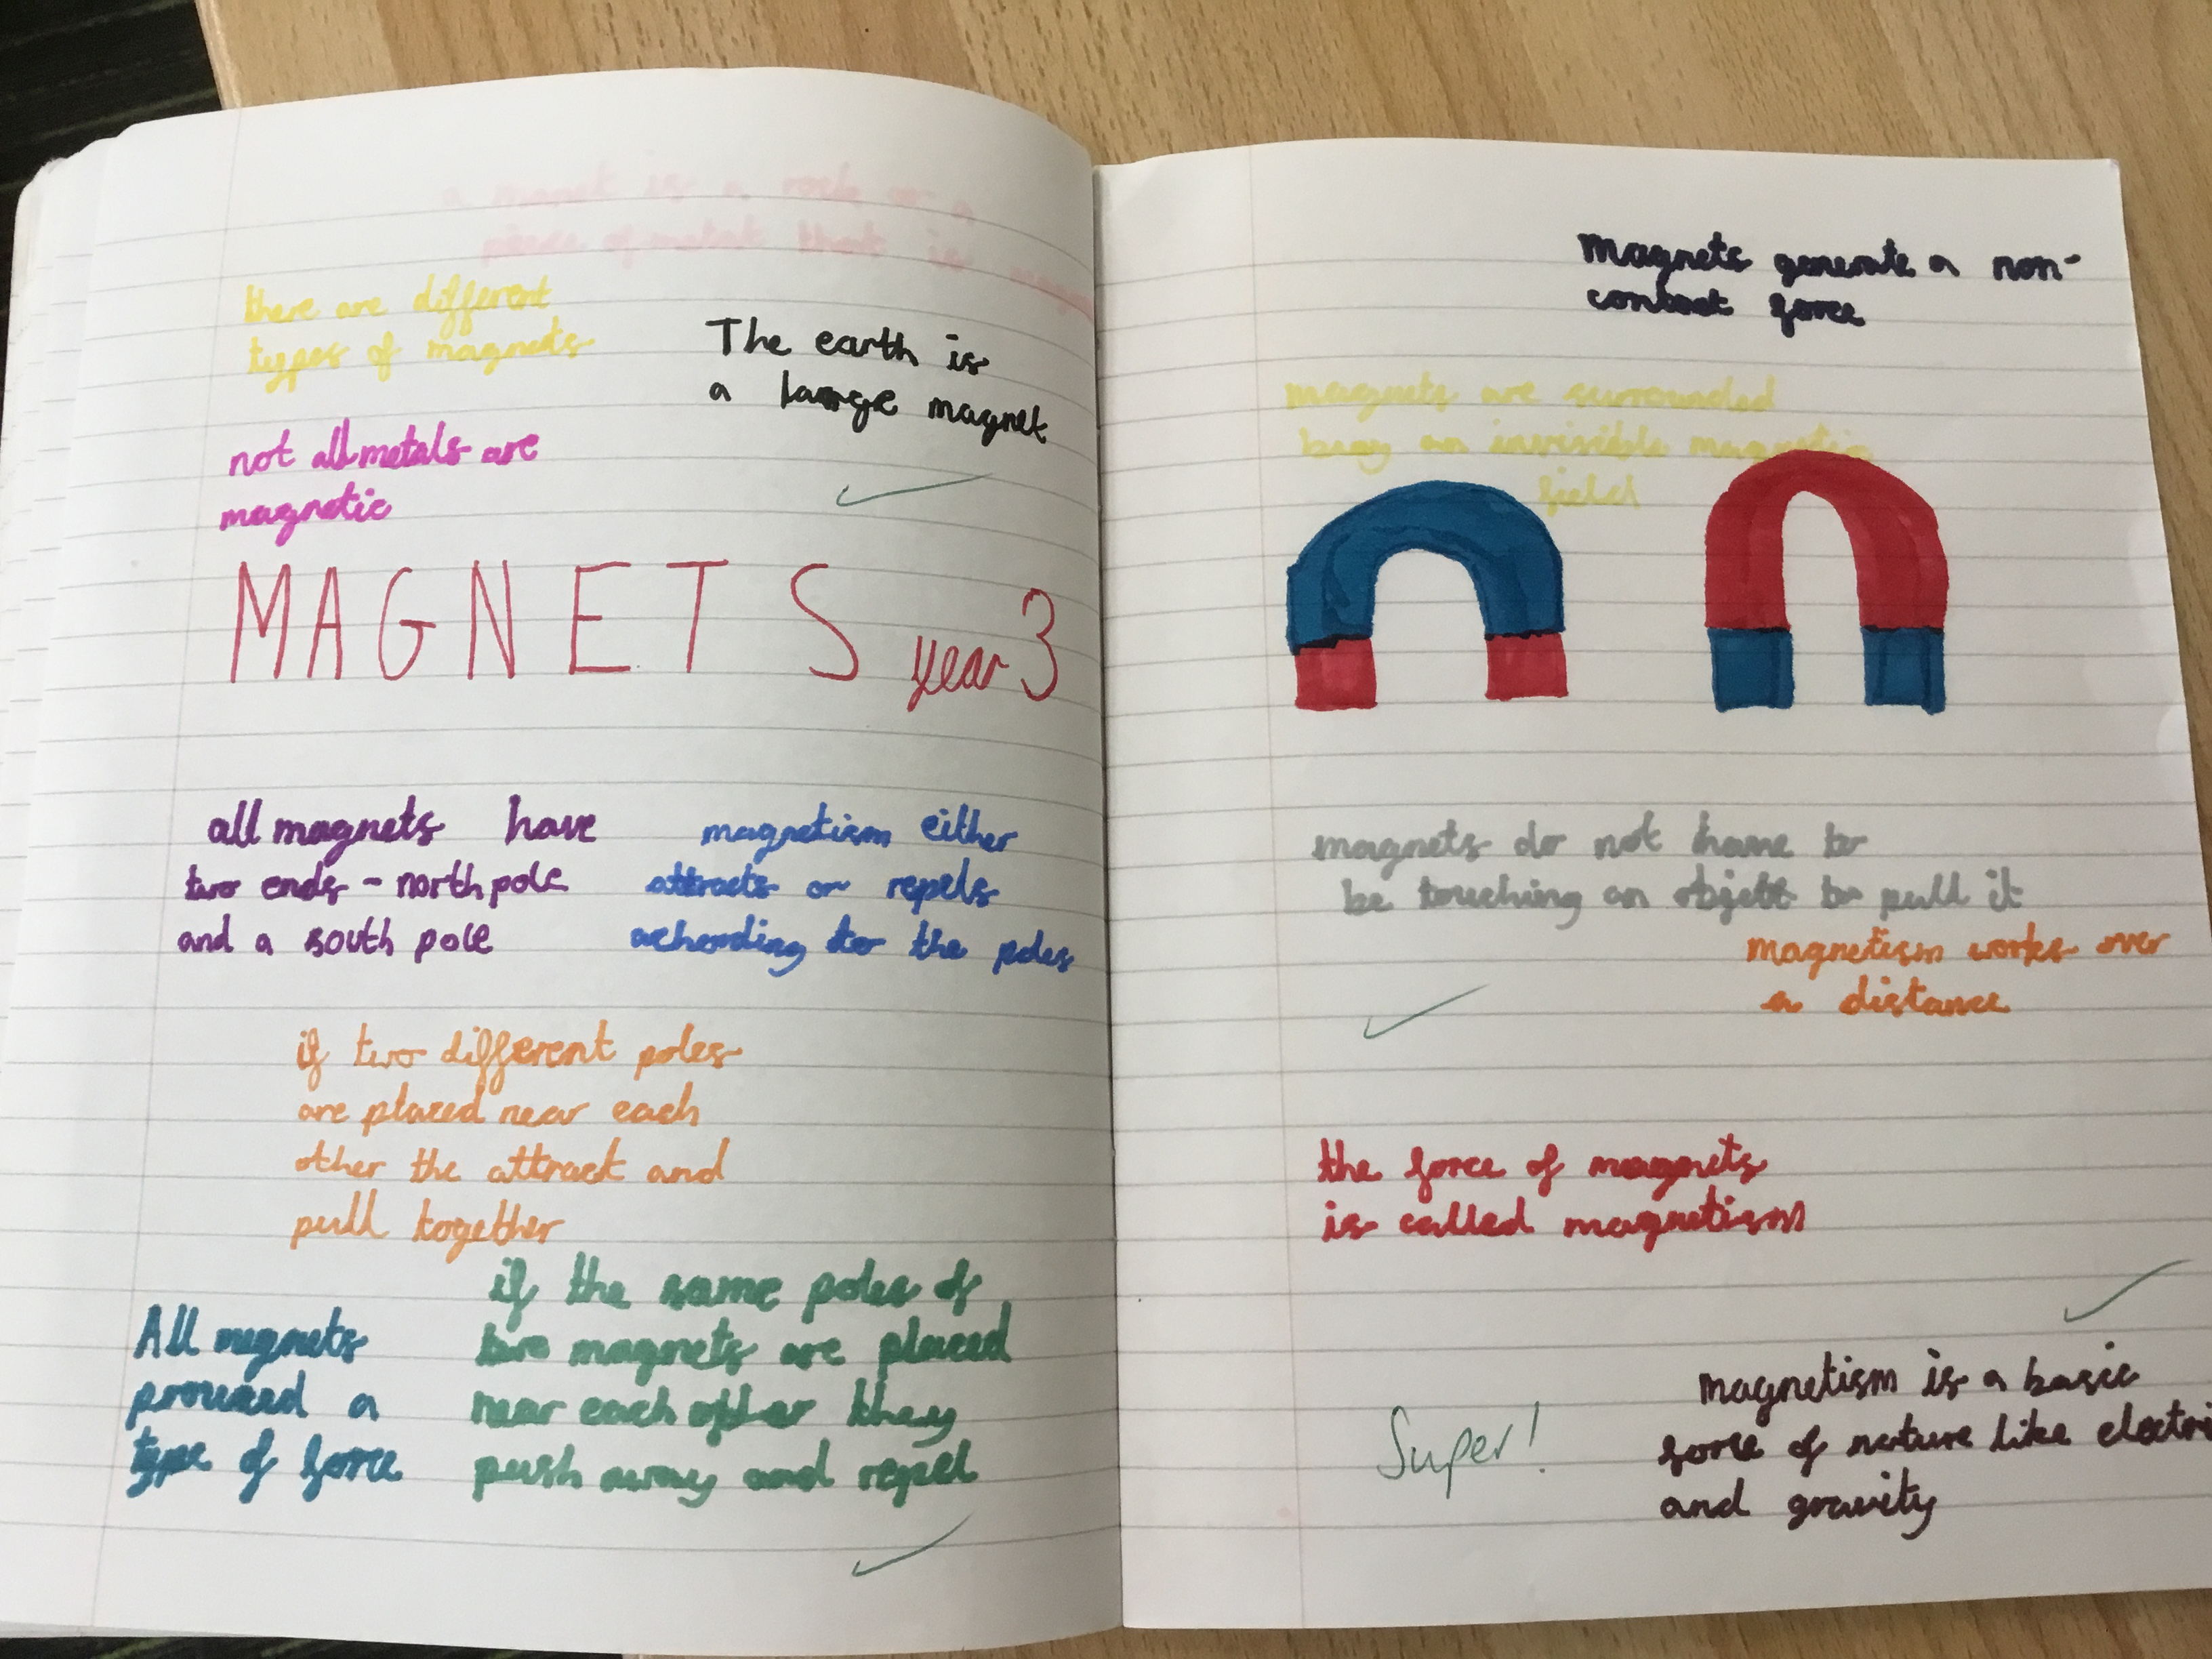 there are different
types of magnets
The earth is
a large magnet
not all metals are
magnetic
MAGNETS year 3
all magnets have
two ends - north pole
and a south pole
magnetism either
attracts or repels
achording to the poles
if two different poles
are placed near each
other the attract and
pull together
All magnets
prouced a
type of force
if the same poles of
two magnets are placed
near each other they
push away and repel
magnets generate a non-
contact force
magnets are surrounded
by an invisible magnetic
field
magnets do not have to
be touching an object to pull it
magnetism works over
a distance
the force of magnets
is called magnetism
Super!
magnetism is a basic
force of nature like electri
and gravity